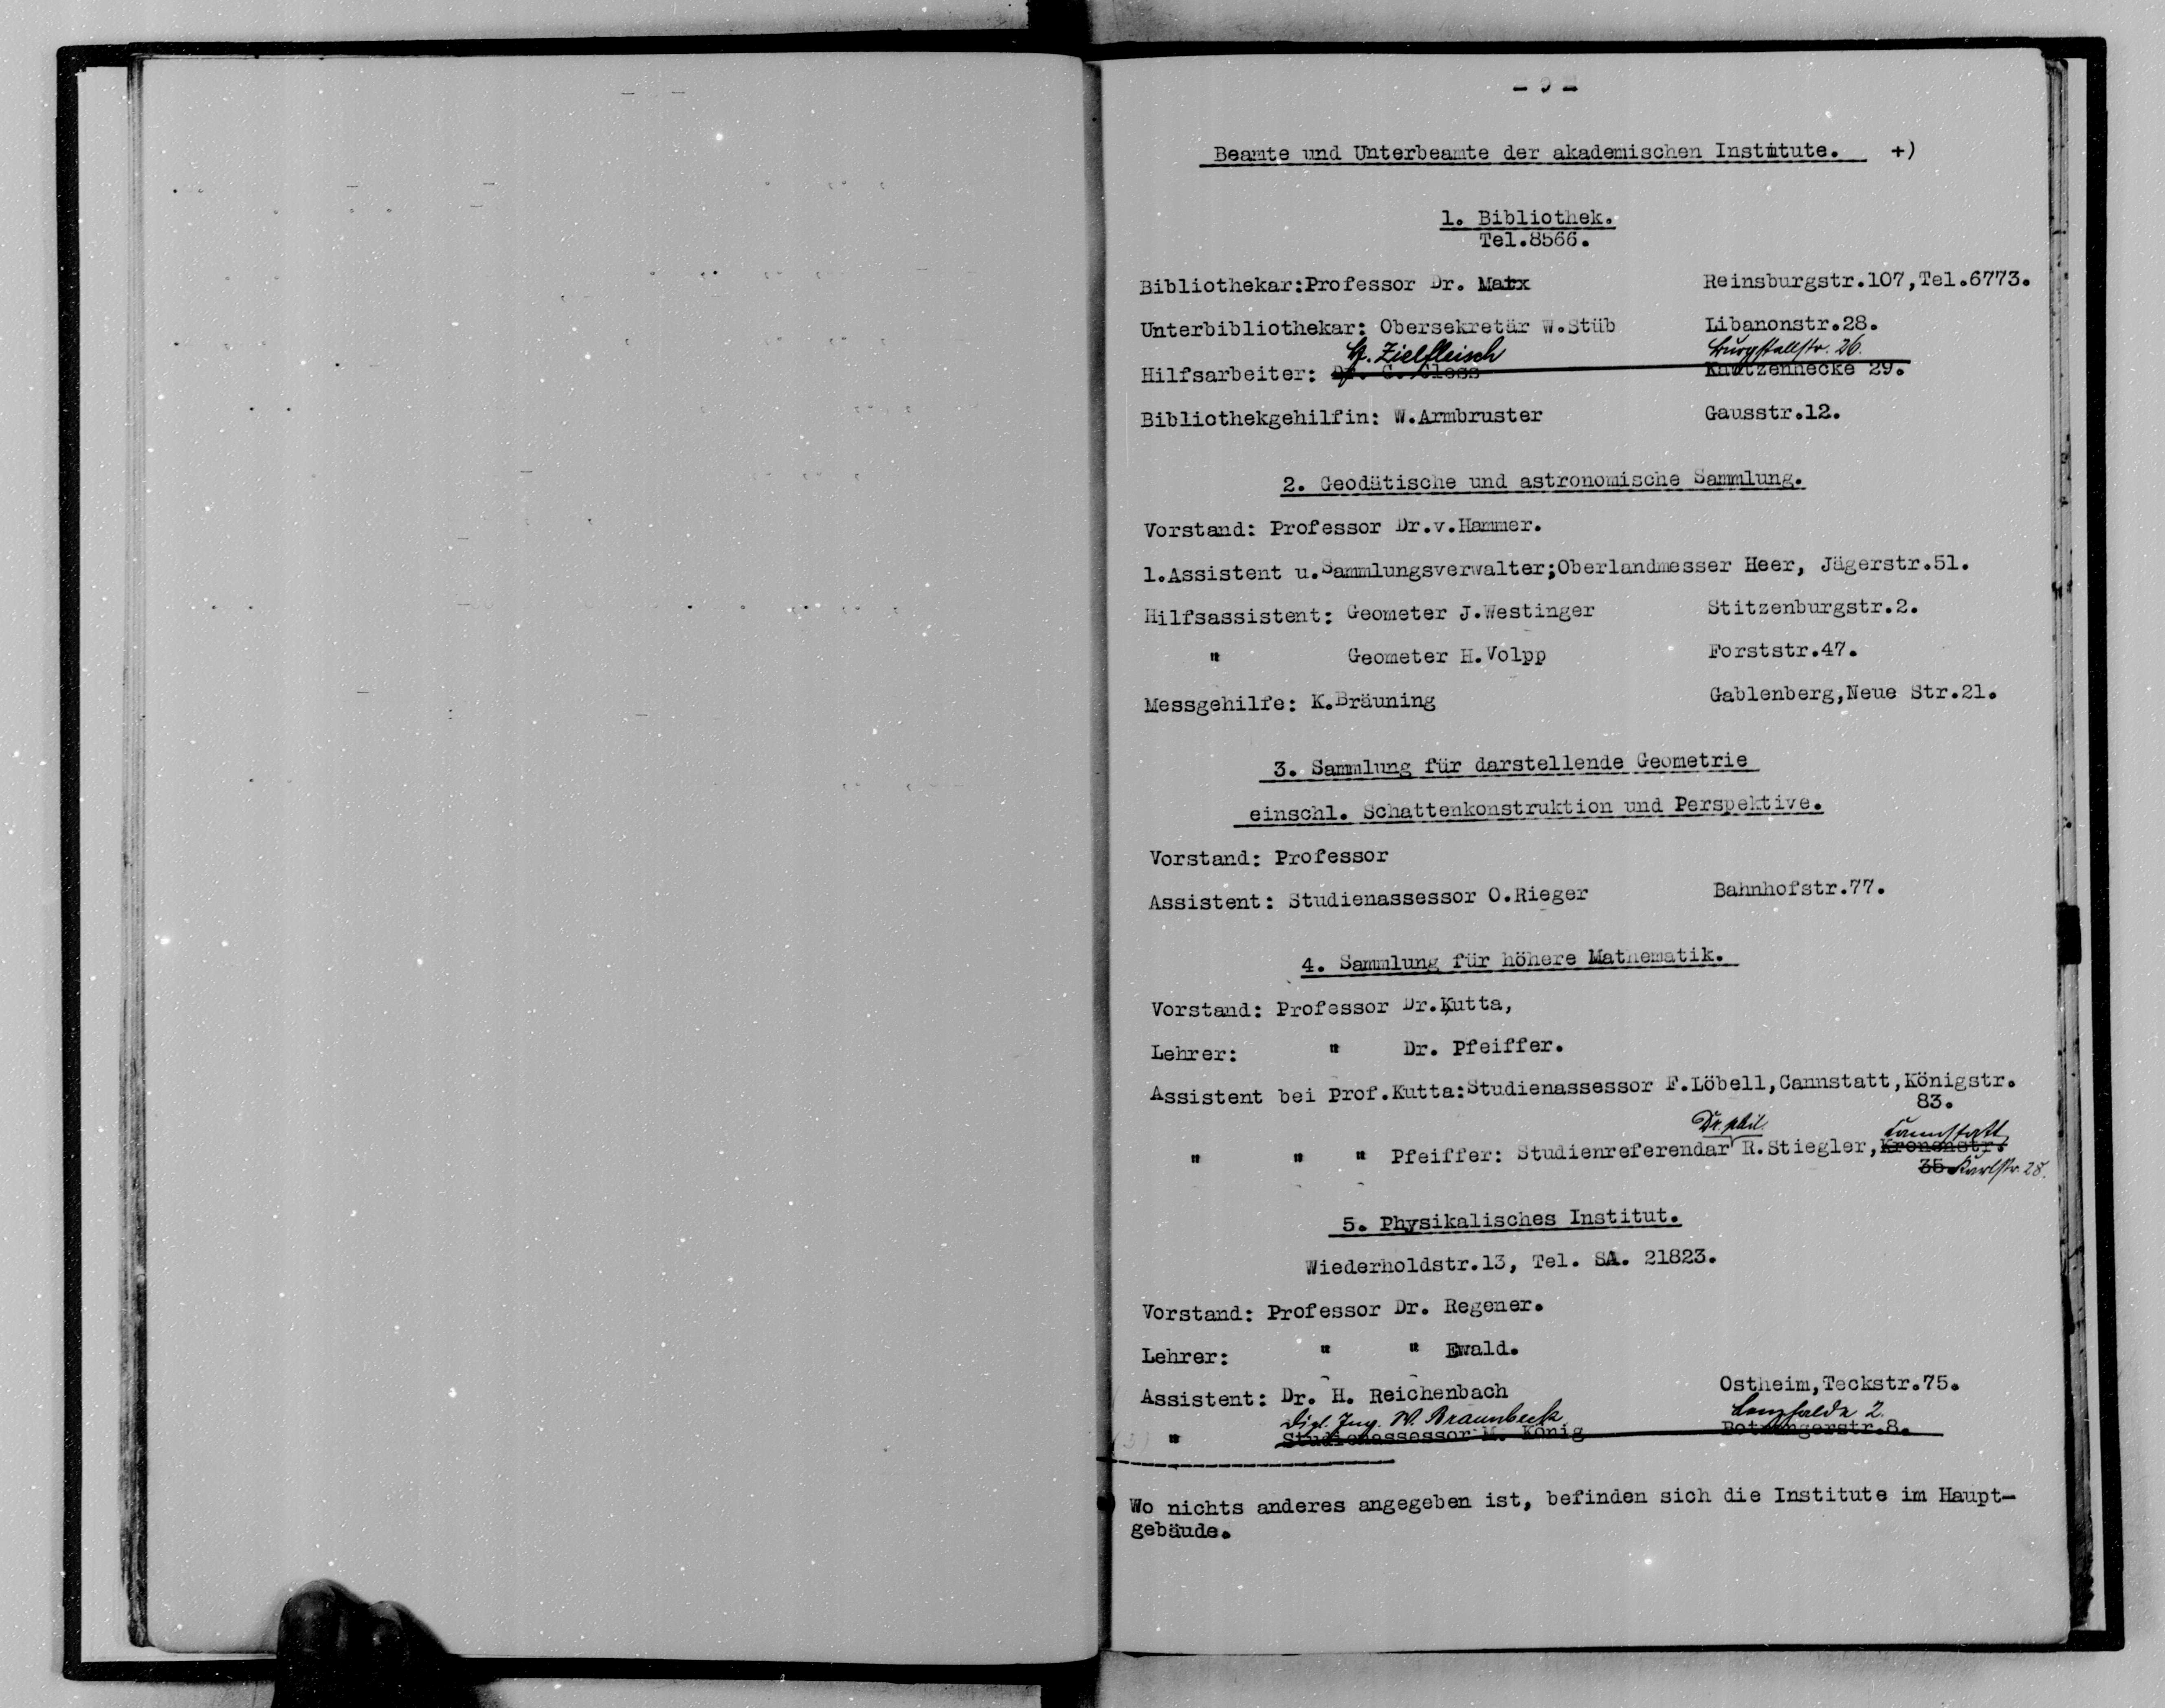 - 9 -
Beamte und Unterbeamte der akademischen Institute. +)
1. Bibliothek.
Tel.8566.
Bibliothekar:Professor Dr. Marx Reinsburgstr.107,Tel.6773.
Unterbibliothekar: Obersekretär W.Stüb Libanonstr.28.
Zielfleisch Burgstallstr. 26.
Hilfsarbeiter: Dr. C. Closs 29.
Bibliothekgehilfin: W.Armbruster Gausstr.12.
2. Geodätische und astronomische Sammlung.
Vorstand: Professor Dr.v.Hammer.
1.Assistent u.Sammlungsverwalter;Oberlandmesser Heer, Jägerstr.51.
Hilfsassistent: Geometer J.Westinger Stitzenburgstr.2.
" Geometer H.Volpp Forststr.47.
Messgehilfe: K.Bräuning Gablenberg,Neue Str.21.
3. Sammlung für darstellende Geometrie
einschl. Schattenkonstruktion und Perspektive.
Vorstand: Professor
Assistent: Studienassessor O.Rieger Bahnhofstr.77.
4. Sammlung für höhere Mathematik.
Vorstand: Professor Dr.Kutta,
Lehrer: " Dr. Pfeiffer.
Assistent bei Prof.Kutta:Studienassessor F.Löbell,Cannstatt,Königstr.
83.
Dr. phil. Cannstatt
" " " Pfeiffer: Studienreferendar R.Stiegler,Kronenstr.
35 Karlstr. 28.
5. Physikalisches Institut.
Wiederholdstr.13, Tel. SA. 21823.
Vorstand: Professor Dr. Regener.
Lehrer: " " Ewald.
Assistent: Dr. H. Reichenbach Ostheim,Teckstr.75.
Dipl. Ing. W. Braunbeck Lenzhalde 2.
" Studienassessor M. König Botnangerstr.8.
Wo nichts anderes angegeben ist, befinden sich die Institute im Haupt-
gebäude.